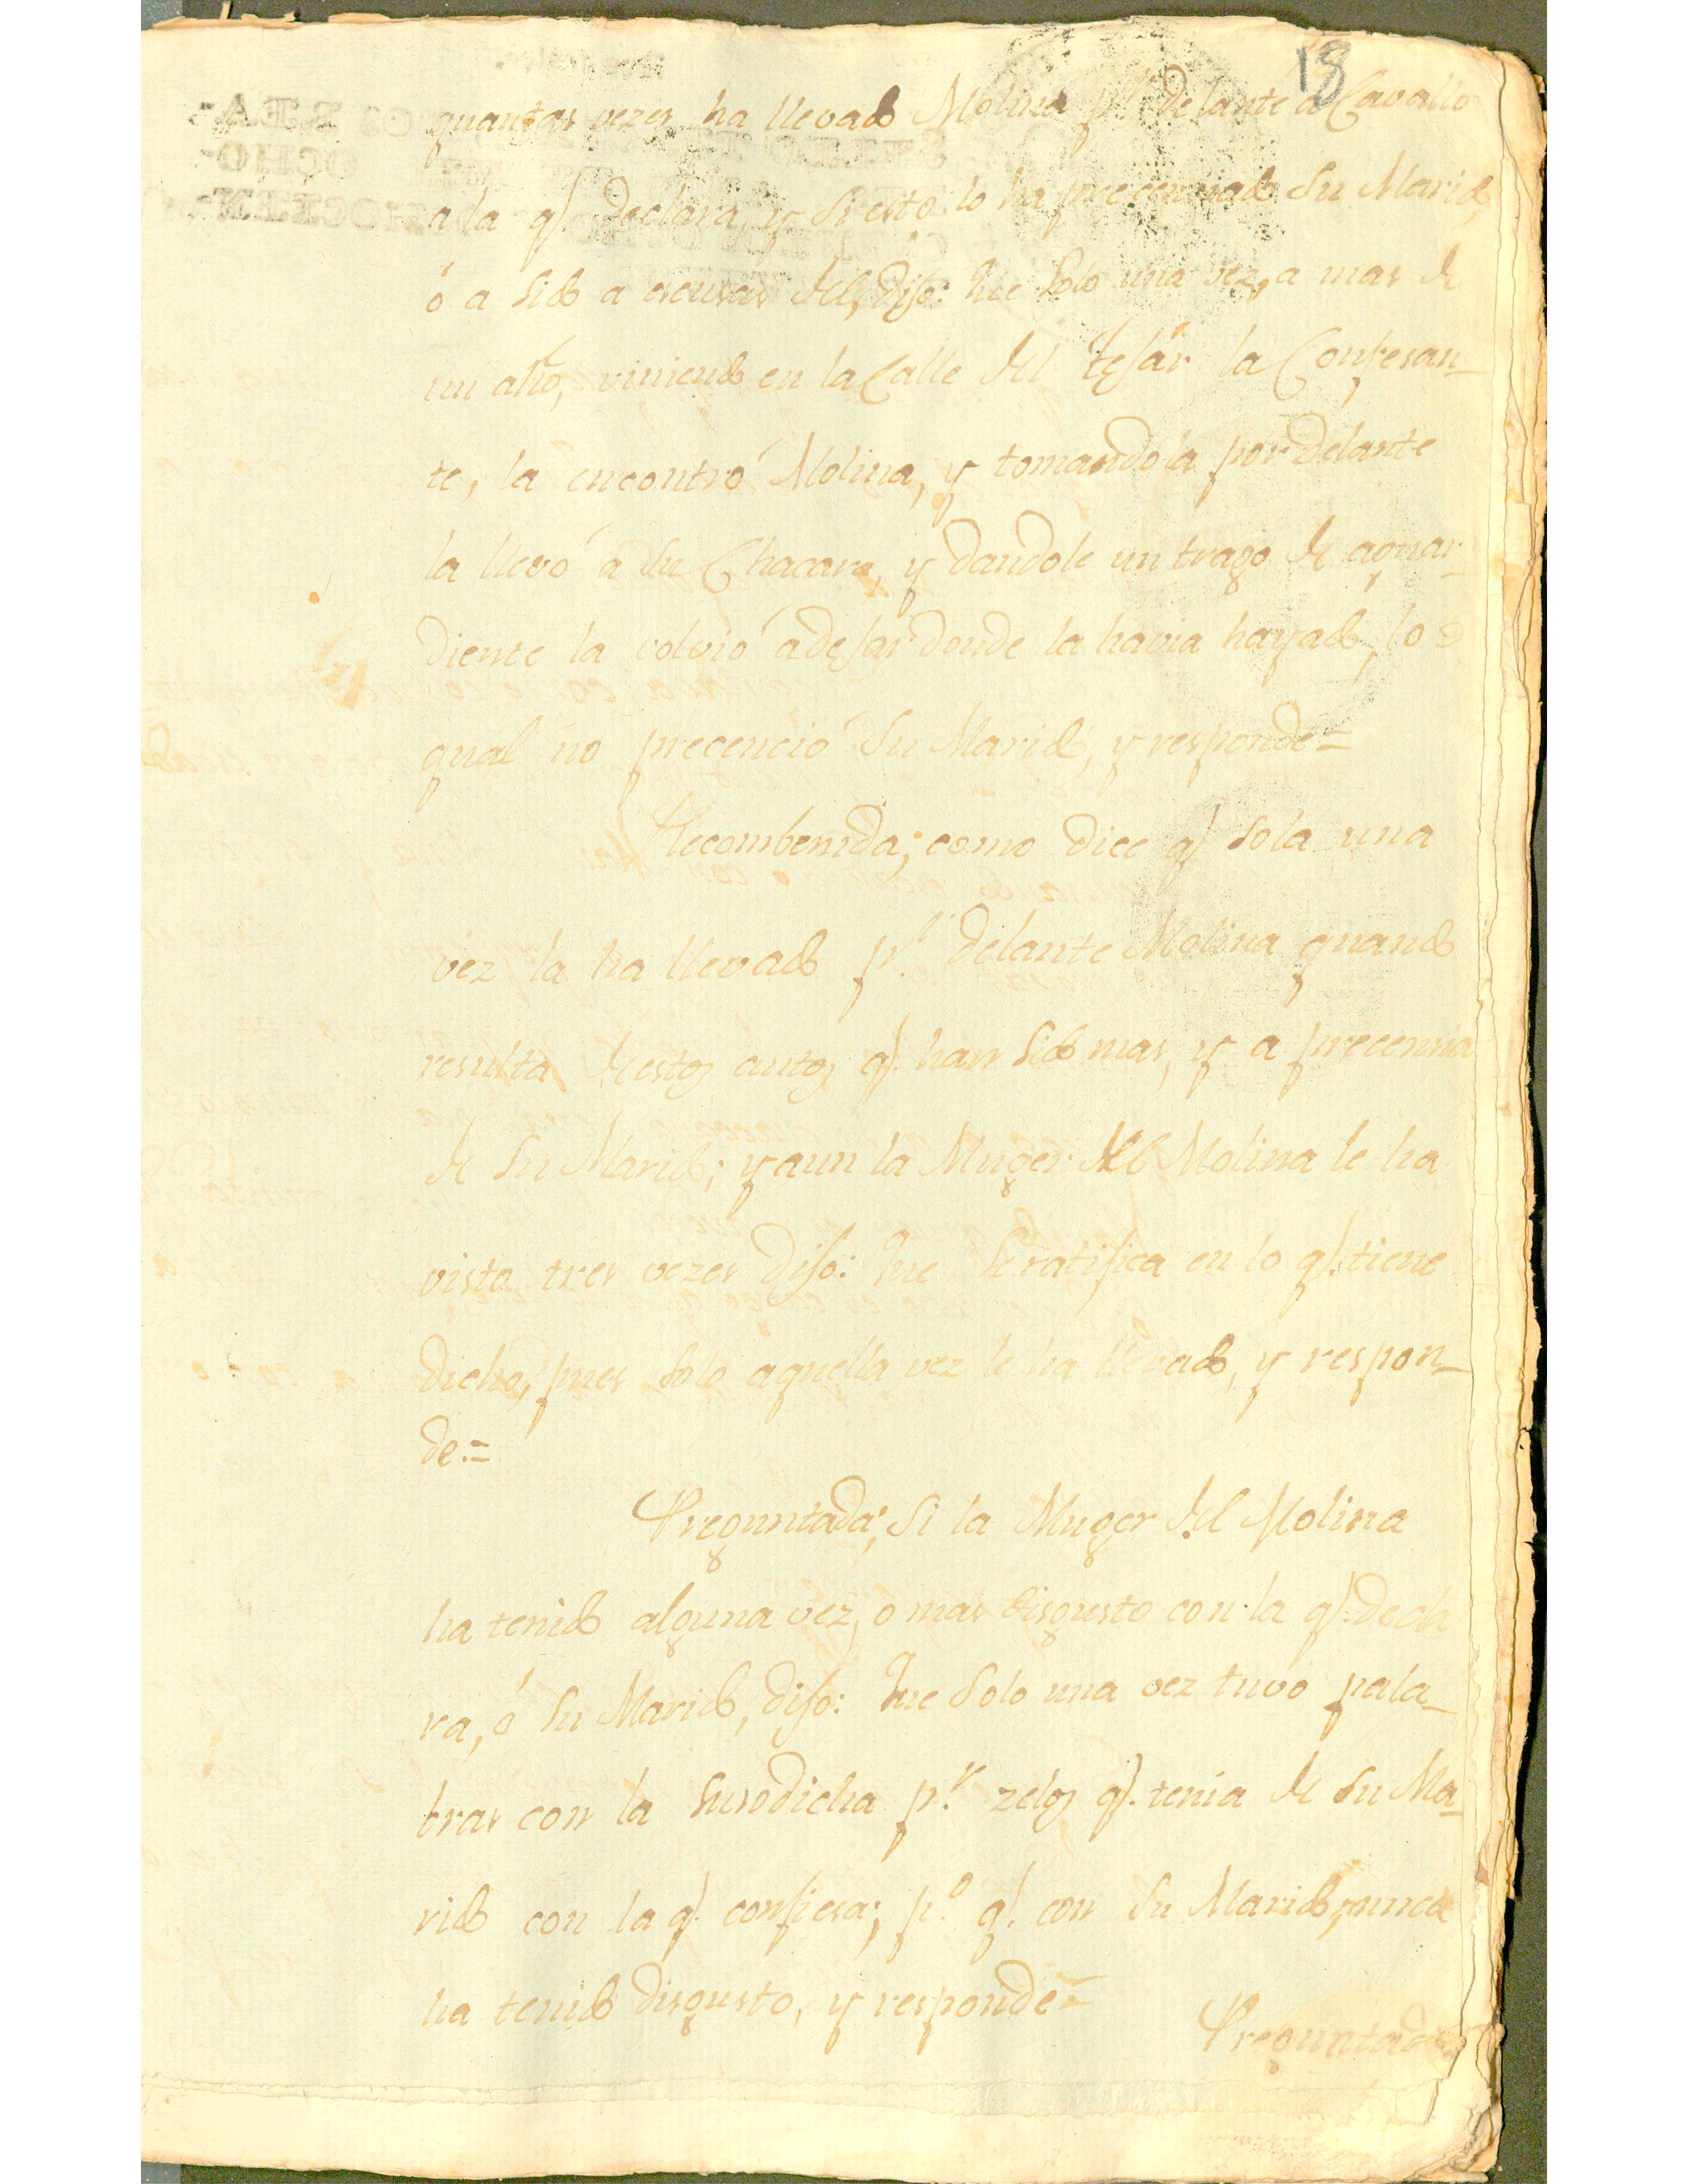 18
quantas vezes ha llevado Molina pr. delante á Cavallo
a la q. declara, y si esto lo ha precenciado su Marido,
ó a sido a escusas del, dijo: Que solo una vez, a mas de
un año, viniendo en la Calle del tejár la Confesan-
te, la encontró Molina, y tomandola por delante
la llevó á su Chacara, y dandole un trago de aguar-
diente la volvió á dejar donde la havia hayado, lo
qual no precenció su Marido, y responde=
Recombenida; como dice q. sola una
vez la ha llevado pr. delante Molina quando
resulta de estos autos q. han sido mas, y a precencia
de su Marido; y aun la Muger del Molina le ha
visto tres vezes dijo: Que se ratifica en lo q. tiene
dicho, pues solo aquella vez le ha llevado, y respon-
de.=
Preguntada; si la Muger del Molina
ha tenido alguna vez, o mas disgusto con la q. decla
ra, ó su Marido, dijo: Que solo una vez tuvo pala-
bras con la susodicha pr. zelos q. tenia de su Ma-
rido con la q. confiesa; po. q. con su Marido, nunca
ha tenido disgusto, y responde=
Preguntada